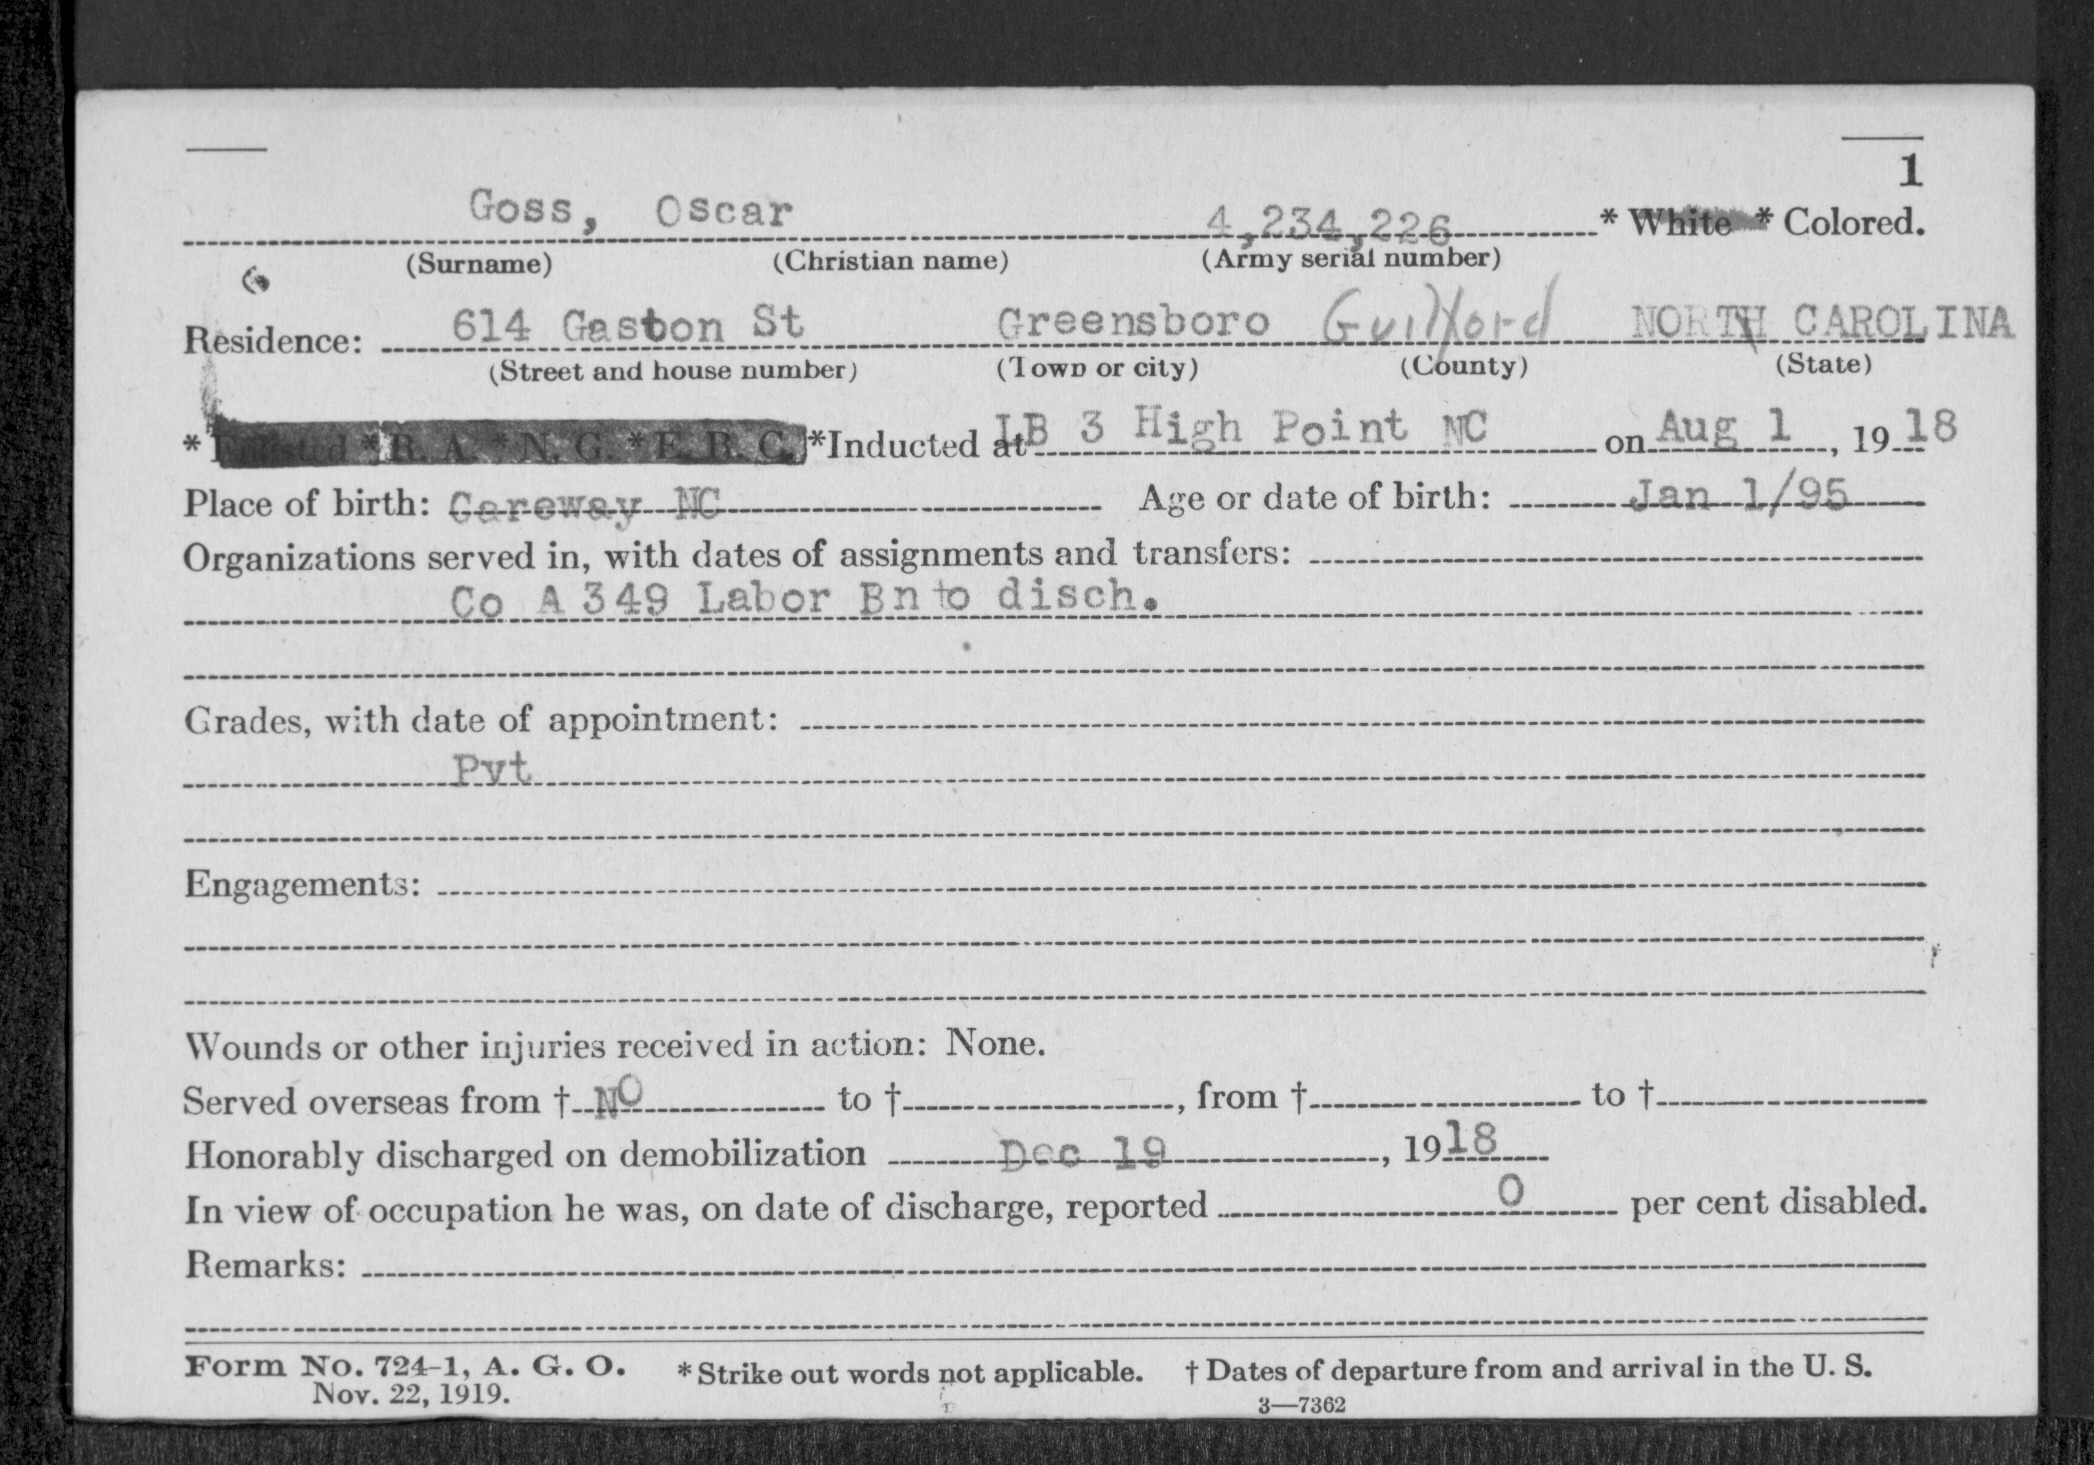 1
Goss, Oscar 4,234,226 * White * Colored.
(Surname) (Christian name) (Army serial number)
Residence: 614 Gaston St Greensboro Guilford NORTH CAROLINA
(Street and house number) (Town or city) (County) (State)
* Enlisted * R. A. * N. G. * E. R. C. *Inducted at LB 3 High Point NC on Aug 1, 1918
Place of birth: Careway NC Age or date of birth: Jan 1/95
Organizations served in, with dates of assignments and transfers:
Co A 349 Labor Bn to disch.
Grades, with date of appointment:
Pvt
Engagements:
Wounds or other injuries received in action: None.
Served overseas from † NO to †, from † to †
Honorably discharged on demobilization Dec 19, 1918
In view of occupation he was, on date of discharge, reported 0 per cent disabled.
Remarks:
Form No. 724-1, A. G. O. * Strike out words not applicable. † Dates of departure from and arrival in the U. S.
Nov. 22, 1919. 3—7362